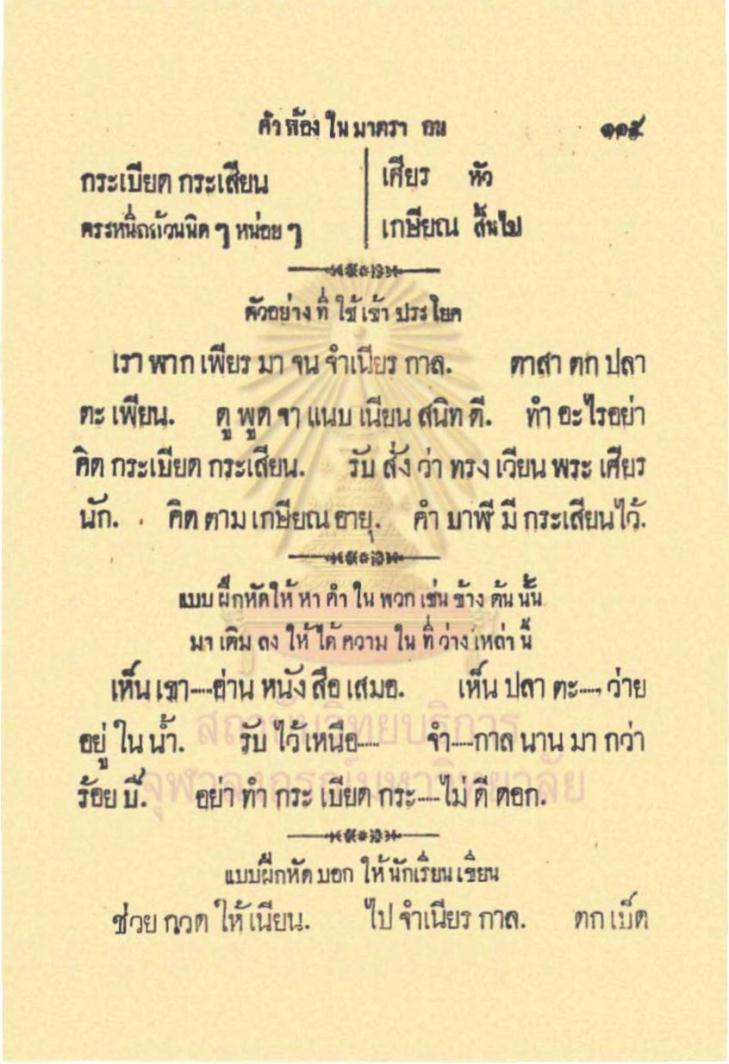 คำพ้อง ใน มาตรา กน ๑๑๕
กระเบียด กระเสียน
ตระหนี่ถี่ถ้วนนิด ๆ หน่อย ๆ
เศียร หัว
เกษียณ สิ้นไป
ตัวอย่าง ที่ ใช้ เข้า ประโยค
เรา พาก เพียร มา จน จำเนียร กาล. ตาสา ตก ปลา
ตะ เพียน. ดู พูด จา แนบ เนียน สนิท ดี. ทำ อะไร อย่า
คิด กระเบียด กระเสียน. รับ สั่ง ว่า ทรง เวียน พระ เศียร
นัก. คิด ตาม เกษียณ อายุ. คำ บาฬี มี กระเสียน ไว้.
แบบ ฝึกหัด ให้ หา คำ ใน พวก เช่น ข้าง ต้น นั้น
มา เติม ลง ให้ ได้ ความ ใน ที่ ว่าง เหล่า นี้
เห็น เขา----อ่าน หนัง สือ เสมอ. เห็น ปลา ตะ----ว่าย
อยู่ ใน น้ำ. รับ ไว้ เหนือ---- จำ----กาล นาน มา กว่า
ร้อย ปี. อย่า ทำ กระ เบียด กระ----ไม่ ดี ดอก.
แบบฝึกหัด บอก ให้ นักเรียน เขียน
ช่วย กวด ให้ เนียน. ไป จำเนียร กาล. ตก เบ็ด
สถาบันวิทยบริการ
จุฬาลงกรณ์มหาวิทยาลัย